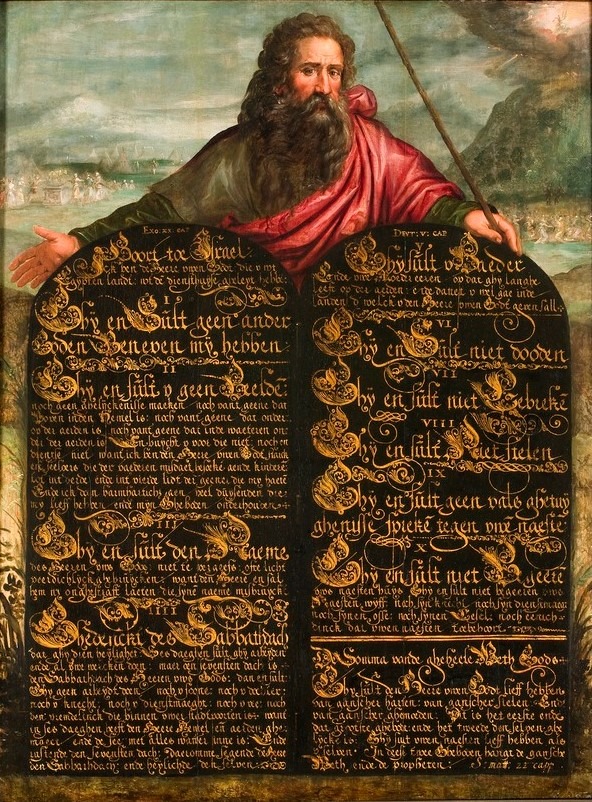 Exo: xx. cap
Hoort toe Israel:
Ick ben de Heere uwen Godt die u wt
Egypten landt: wt de diensthuyse gheleyt hebbe:
I
Ghy en Sult geen ander
Goden Beneven my hebben:
II
Ghy en sult u geen Beelde
noch geen ghelyckenisse maeken noch vant geene dat
Boven inden Hemel is: noch vant geene dat onder
op der aerden is: noch vant geene dat inde waeteren on
der der aerden is: En buycht u voor die niet: noch en
dientse niet want ick ben den Heere uwen Godt
die der vaederen misdaet aende kinderē
tot int derde ende int vierde lidt der geene die my haetē
Ende ick doen barmhaiticheyt aen veel duysenden die
my lief hebben: ende myn Gheboden onderhouden:
III
Ghy en sult den Naeme
des Heeren uws Godts niet te vergeefs: ofte licht
veerdichlyck ghebruycken: want den Heere en sal
hem ny ongestraft laeten die syne naeme misbruyckt
IIII
Ghedenckt des Sabbathdach
dat ghy dien heylight: Ses daeghen sult ghy arbeyden
ende al uwe wercken doen: maer den sevensten dach is
den Sabbathdach des Heeren uws Gods: dan en sult
Ghy geen arbeydt doen: noch u soone: noch u dochter:
noch u knecht: noch u dienstmaeght: noch u vee: noch
den vremdelinck die binnen uwer stadtpoorten is: want
in ses daeghen heeft den Heere Hemel en aerden ghe
maeckt: ende de see: met alles watter inne is: Ende
rustende den sevensten dach: Daeromme segende de Heere
den Sabbathdach: ende heylichde den selven:
Devt: v: cap
V
Ghy sult u Vaeder
Ende uwe Moeder eeren op dat ghy langhe
leeft op der aerden: ende dattet u wel gae inde
landen d welck u den Heere uwen Godt geven sal:
VI
Ghy en Sult niet dooden
VII
Ghy en sult niet Eebrekē
VIII
Ghy en sult Niet stelen
IX
Ghy en sult geen vals ghetuy
ghenisse spreke tegen uwē naeste
X
Ghy en sult niet Begeere
uws naesten huys Ghy en sult niet begeeren uws
Naesten wyff noch syn knecht noch syn dienstmaeght
noch synen osse: noch synen Eesel: noch eenich
dinck dat uwen naesten toebehoort:
De Somma vande gheheele Weth Gods:
Ghy sult den Heere uwen Godt lieff hebben
van gansscher harten: van gansscher sielen: End
van gansscher ghemoeden: Dit is het eerste ende
dat grootste ghebodt: ende het tweede den selven ghe
lycke is: Ghy sult uwen naesten lieff hebben als u
selven: In deese twee Gheboden hangt de gansche
Weth, ende de propheten: S: mat: 22 capp: